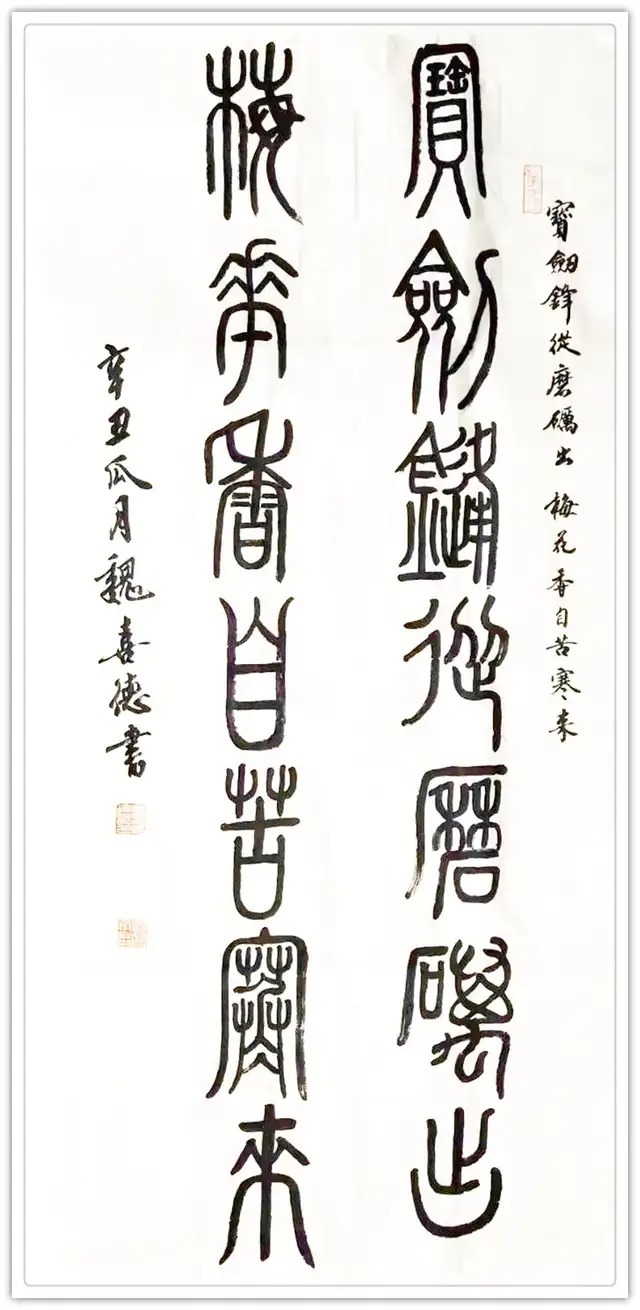 寶劒鋒從磨礪出 梅花香自苦寒来
寶劍鋒從磨礪出
梅華香自苦寒来
辛丑瓜月魏喜德書